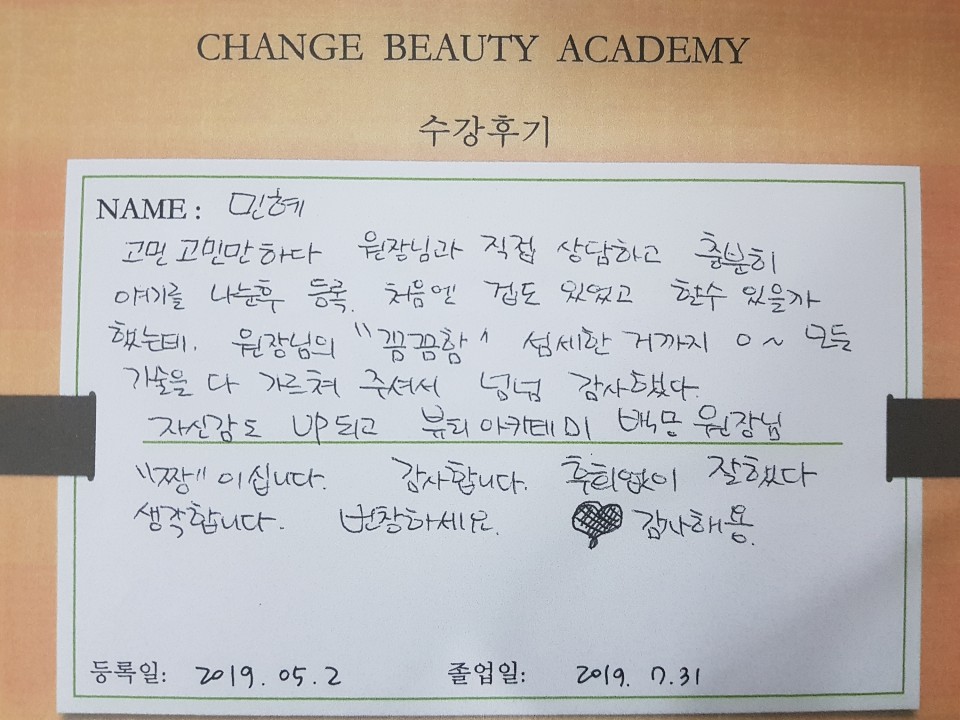 CHANGE BEAUTY ACADEMY
수강후기
NAME : 민혜
고민 고민만 하다 원장님과 직접 상담하고 충분히
얘기를 나눈후 등록. 처음엔 겁도 있었고 할수 있을까
했는데. 원장님의 "꼼꼼함" 섬세한 거까지 ~ 모든
기술을 다 가르쳐 주셔서 넘넘 감사했다.
자신감도 UP되고 뷰티아카데미 원장님
"짱"이십니다. 감사합니다. 후회없이 잘했다
생각합니다. 번창하세요. 감사해용.
등록일: 2019.05.2 졸업일: 2019. 7.31